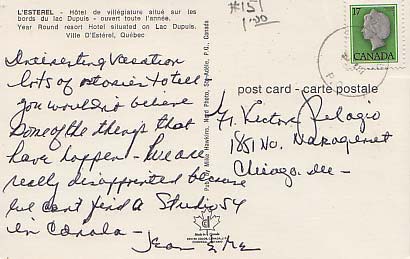 L'ESTEREL - Hôtel de villégiature situé sur les
bords du lac Dupuis - ouvert toute l'année.
Year Round resort Hotel situated on Lac Dupuis.
Ville D'Estérel, Québec
#151
1.00
17
CANADA
Interesting Vacation
lots of stories to tell
you wouldn't believe
some of the things that
have happen - We are
really disappointed because
we can't find a Studio 54
in Canada -
Jean & Me
Pub. by Mike Hawkins, Nord Photo, Ste-Adèle, P.Q., CANADA
post card - carte postale
Victor Pelagio
1851 No.
Chicago Ill -